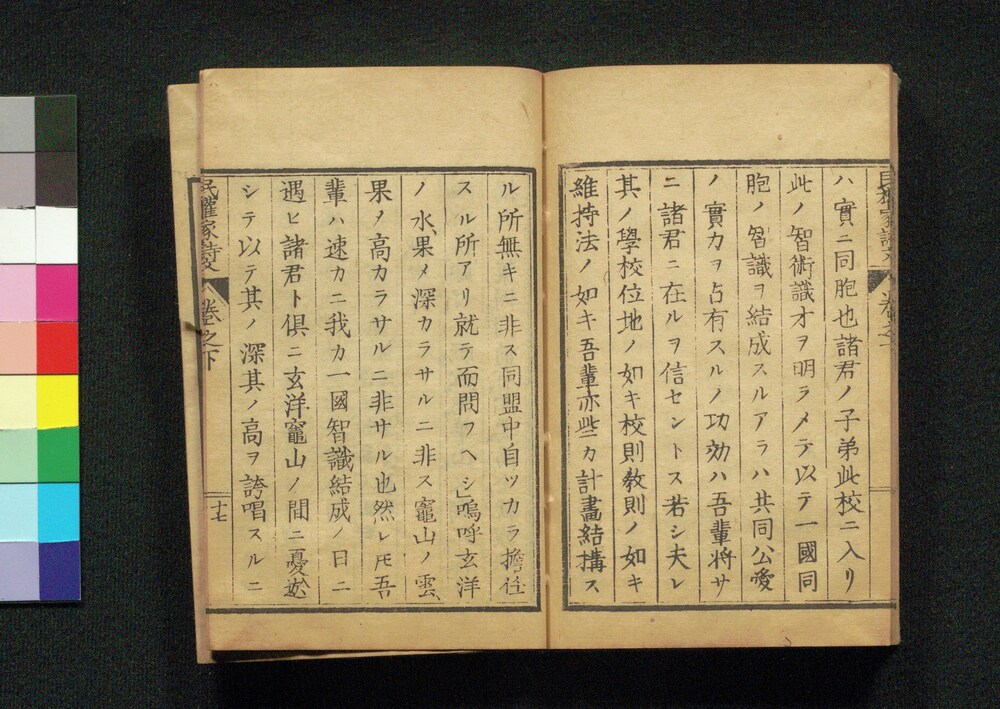 ハ實ニ同胞也諸君ノ子弟此校ニ入リ
此ノ智術識才ヲ明ラメテ以テ一國同
胞ノ智識ヲ結成スルアラハ共同公愛
ノ實力ヲ占有スルノ功効ハ吾輩将サ
ニ諸君ニ在ルヲ信セントス若シ夫レ
其ノ學校位地ノ如キ校則教則ノ如キ
維持法ノ如キ吾輩亦些カ計畫結構ス
ル所無キニ非ス同盟中自ツカラ擔任
スル所アリ就テ而問フヘシ」嗚呼玄洋
ノ水、果〆深カラサルニ非ス竈山ノ雲、
果〆高カラサルニ非サル也然レ𪜈吾
輩ハ速カニ我カ一國智識結成ノ日ニ
遇ヒ諸君ト倶ニ玄洋竈山ノ間ニ
シテ以テ其ノ深其ノ高ヲ誇唱スルニ
民權家 卷之下
十七